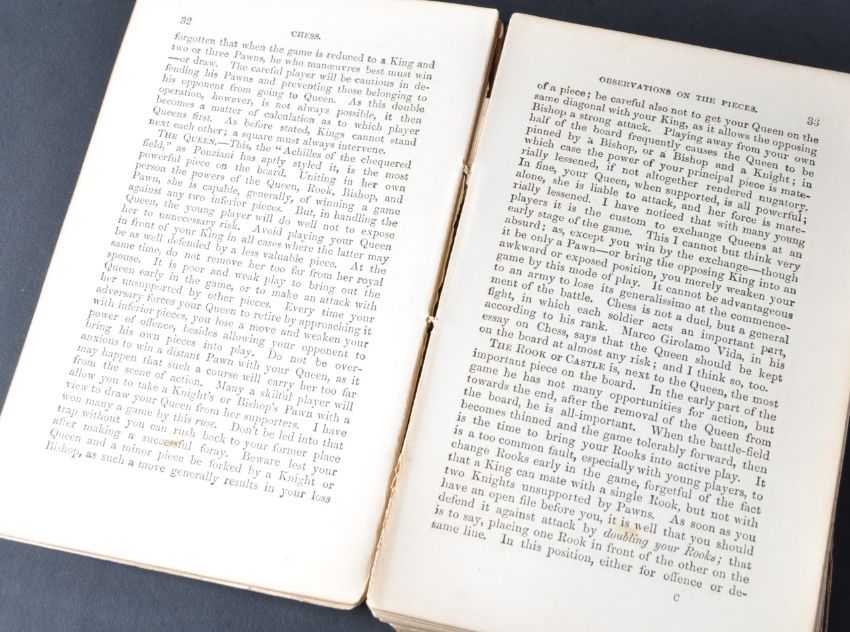 32
CHESS.
forgotten that when the game is reduced to a King and
two or three Pawns, he who manœuvres best must win
—or draw. The careful player will be cautious in de-
fending his Pawns and preventing those belonging to
his opponent from going to Queen. As this double
operation, however, is not always possible, it then
becomes a matter of calculation as to which player
Queens first. As before stated, Kings cannot stand
next each other; a square must always intervene.
THE QUEEN.—This, the "Achilles of the chequered
field," as Ponziani has aptly styled it, is the most
powerful piece on the board. Uniting in her own
person the powers of the Queen, Rook, Bishop, and
Pawn, she is capable, generally, of winning a game
against any two inferior pieces. But, in handling the
Queen, the young player will do well not to expose
her to unnecessary risk. Avoid playing your Queen
in front of your King in all cases where the latter may
be as well defended by a less valuable piece. At the
same time, do not remove her too far from her royal
spouse. It is poor and weak play to bring out the
Queen early in the game, or to make an attack with
her unsupported by other pieces. Every time your
adversary forces your Queen to retire by approaching it
with inferior pieces, you lose a move and weaken your
power of offence, besides allowing your opponent to
bring his own pieces into play. Do not be over-
anxious to win a distant Pawn with your Queen, as it
may happen that such a course will carry her too far
from the scene of action. Many a skilful player will
allow you to take a Knight's or Bishop's Pawn with a
view to draw your Queen from her supporters. I have
won many a game by this ruse. Don't be led into that
trap without you can rush back to your former place
after making a successful foray. Beware lest your
Queen and a minor piece be forked by a Knight or
Bishop, as such a move generally results in your loss
OBSERVATIONS ON THE PIECES.
33
of a piece; be careful also not to get your Queen on the
same diagonal with your King, as it allows the opposing
Bishop a strong attack. Playing away from your own
half of the board frequently causes the Queen to be
pinned by a Bishop, or a Bishop and a Knight; in
which case the power of your principal piece is mate-
rially lessened, if not altogether rendered nugatory.
In fine, your Queen, when supported, is all powerful;
alone, she is liable to attack, and her force is mate-
rially lessened. I have noticed that with many young
players it is the custom to exchange Queens at an
early stage of the game. This I cannot but think very
absurd; as, except you win by the exchange—though
it be only a Pawn—or bring the opposing King into an
awkward or exposed position, you merely weaken your
game by this mode of play. It cannot be advantageous
to an army to lose its generalissimo at the commence-
ment of the battle. Chess is not a duel, but a general
fight, in which each soldier acts an important part,
according to his rank. Marco Girolamo Vida, in his
essay on Chess, says that the Queen should be kept
on the board at almost any risk; and I think so, too.
THE ROOK OR CASTLE is, next to the Queen, the most
important piece on the board. In the early part of the
game he has not many opportunities for action, but
towards the end, after the removal of the Queen from
the board, he is all-important. When the battle-field
becomes thinned and the game tolerably forward, then
is the time to bring your Rooks into active play. It
is a too common fault, especially with young players, to
change Rooks early in the game, forgetful of the fact
that a King can mate with a single Rook, but not with
two Knights unsupported by Pawns. As soon as you
have an open file before you, it is well that you should
defend it against attack by doubling your Rooks; that
is to say, placing one Rook in front of the other on the
same line. In this position, either for offence or de-
C